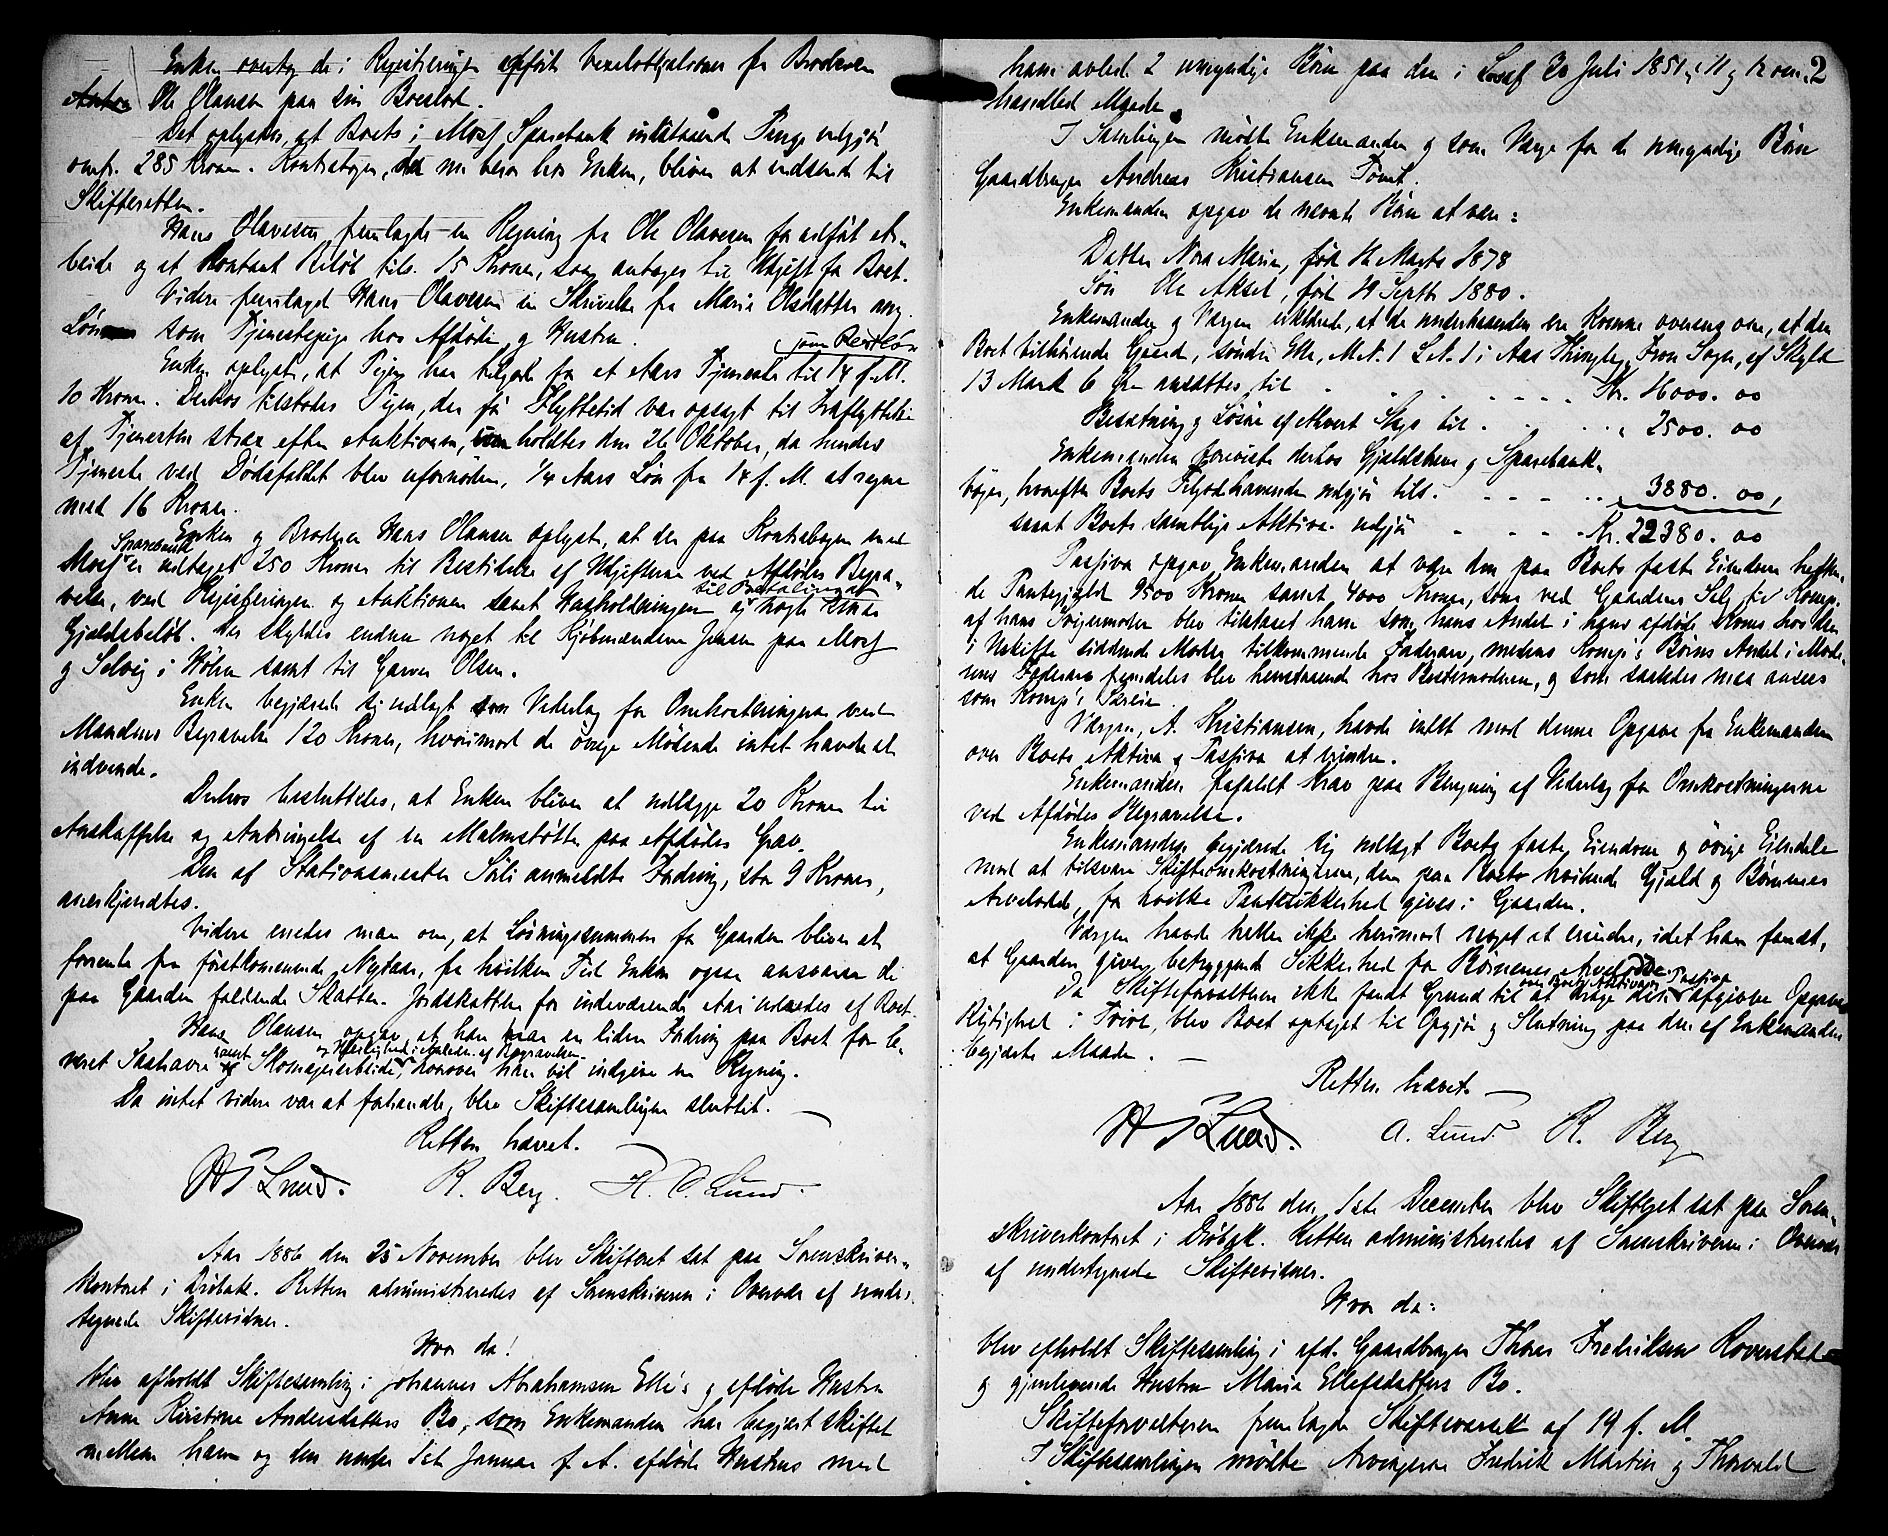 Enken overtog de i Registeringen opførte Vexelobligationer fra Broderen
Anton Ole Olausen paa sin Boeslod.
Det oplystes, at Boets i Moss Sparebank indestaaende Penge udgjør
omtr. 285 Kroner. Kontrabogen, der nu beror hos Enken, bliver at indsende til
Skifteretten.
Hans Olavesen fremlagde en Regning fra Ole Olavesen for udført Ar-
beide og et Kontant Beløb tils. 15 Kroner, som antages til Udgift for Boet.
Videre fremlagde Hans Olavesen en Skrivelse fra Maria Olsdatter ang.
Løn som Tjenestepige hos Afdøde og Hustru.
som Restløn
Enken oplyste, at Pigen har tilgode for et Aars Tjeneste til 14 f. M.
10 Kroner. Derhos tilstodes Pigen, der før Flyttetid var opsagt til Fraflyttelse
af Tjenesten strax efter Auktionen, som holdtes den 26 Oktober, da hendes
Tjeneste ved Dødsfaldet blev ufornøden, 1/4 Aars Løn fra 14 f. M. at regne
med 16 Kroner.
Enken og Broderen Hans Olausen oplyste, at der paa Kontrabogen med
Sparebank
Moss er udtaget 250 Kroner til Bestridelse af Udgifterne ved Afdødes Begra-
til Betaling af
velse, ved Registeringen og Auktionen samt Husholdningen og nogle smaa
Gjældsbeløb. Der skyldes endnu noget til Kjøbmændene Jensen paa Moss
og Solvig i Hølen samt til Garver Olsen.
Enken begjærede sig udlagt som Vederlag for Omkostningerne ved
Mandens Begravelse 120 Kroner, hvorimod de øvrige Mødende intet havde at
indvende.
Derhos besluttedes, at Enken bliver at udlægge 20 Kroner til
Anskaffelse og Anbringelse af en Malmstøtte paa Afdødes Grav.
Den af Stationsmester Sæli anmeldte Fordring, stor 9 Kroner,
anerkjendtes.
Videre enedes man om, at Løsningssummen for Gaarden bliver at
forrente fra førstkommende Nytaar, fra hvilken Tid Enken ogsaa ansvarer de
paa Gaarden faldende Skatter. Jordskatten for indeværende Aar udredes af Boet.
Hans Olausen opgav at han har en liden Fordring paa Boet for le-
samt og Uleilighed i Anledn. af Begravelsen
veret Saahavre og Skomagerarbeide, hvorover han vil indgive en Regning.
Da intet videre var at forhandle, blev Skiftesamlingen sluttet.
Retten hævet.
H J Lund. R. Berg. H. O. Lund.
Aar 1886 den 25 November blev Skifteret sat paa Sorenskriver-
kontoret i Drøbak. Retten administreredes af Sorenskriveren i Overvær af under-
tegnede Skiftevidner.
Hvor da!
blev afholdt Skiftesamling i Johannes Abrahamsen Elle's og afdøde Hustru
Anne Kirstine Andersdatters Bo, som Enkemanden har begjært skiftet
mellem ham og den under 1ste Januar f. A. afdøde Hustrus med
2
ham avlede 2 umyndige Børn paa den i Lov af 30 Juli 1851 §§ 11 og 12 om-
handlede Maade.
I Samlingen mødte Enkemanden og som Værge for de umyndige Børn
Gaardbruger Andreas Kristiansen Tomt.
Enkemanden opgav de nævnte Børn at være:
Datter Nora Marie, født 16 Marts 1878
Søn Ole Aksel, født 29 Septbr 1880.
Enkemanden og Værgen erklærede, at de underhaanden ere komne overens om, at den
Boet tilhørende Gaard, søndre Elle, M.N. 1 L.N. 1 i Aas Thinglag, Fron Sogn, af Skyld
13 Mark 6 Øre ansættes til - - - - Kr. 16000. 00
Besætning og Løsøre af ethvert Slags til - - - " 2500. 00
Enkemanden foreviste derhos Gjældsbreve og Sparebank-
bøger, hvorefter Boets Tilgodehavender udgjør tils. - - - - " 3880. 00,
samt Boets samtlige Aktiva udgjør - - - - Kr. 22380. 00
Passiva opgav Enkemanden at være den paa Boets faste Eiendom heften-
de Pantegjæld 9500 Kroner samt 4000 Kroner, som ved Gaardens Salg til Komp.
af hans Svigermoder blev tilstaaet ham som hans Andel i hans afdøde Kones hos den
i Uskifte siddende Moder tilkommende Fædrearv, medens Komp's Børns Andel i Mode-
rens Fædrearv fremdeles blev henstaaende hos Bestemoderen, og som saaledes maa ansees
som Komp's Særeie.
Værgen, A. Kristiansen, havde intet mod denne Opgave fra Enkemanden
over Boets Aktiva og Passiva at erindre.
Enkemanden frafaldt Krav paa Beregning af Vederlag for Omkostningerne
ved Afdødes Begravelse.
Enkemanden begjærede sig udlagt Boets faste Eiendom og øvrige Eiendele
mod at tilsvare Skifteomkostningerne, den paa Boet hvilende Gjæld og Børnenes
Arvelodder, for hvilke Pantesikkerhed gives i Gaarden.
Værgen havde heller ikke herimod noget at erindre, idet han fandt,
at Gaarden giver betryggende Sikkerhed for Børnenes Arvelodder.
over Boets Aktiva og Passiva
Da Skifteforvalteren ikke fandt Grund til at drage den afgivne Opgaves
Rigtighed i Tvivl, blev Boet optaget til Opgjør og Slutning paa den af Enkemanden
begjærte Maade.
Retten hævet.
H J Lund. A. Lund. R. Berg
Aar 1886 den 1ste December blev Skifteret sat paa Soren-
skriverkontoret i Drøbak. Retten administreredes af Sorenskriveren i Overvær
af undertegnede Skiftevidner.
Hvor da:
blev afholdt Skiftesamling i afd. Gaardbruger Thore Fredriksen Raverstad
og gjenlevende Hustru Maria Ellefsdatters Bo.
Skifteforvalteren fremlagde Skiftevarsel af 19 f. M.
I Skiftesamlingen mødte Arvingerne Fredrik Martin og Thorvald